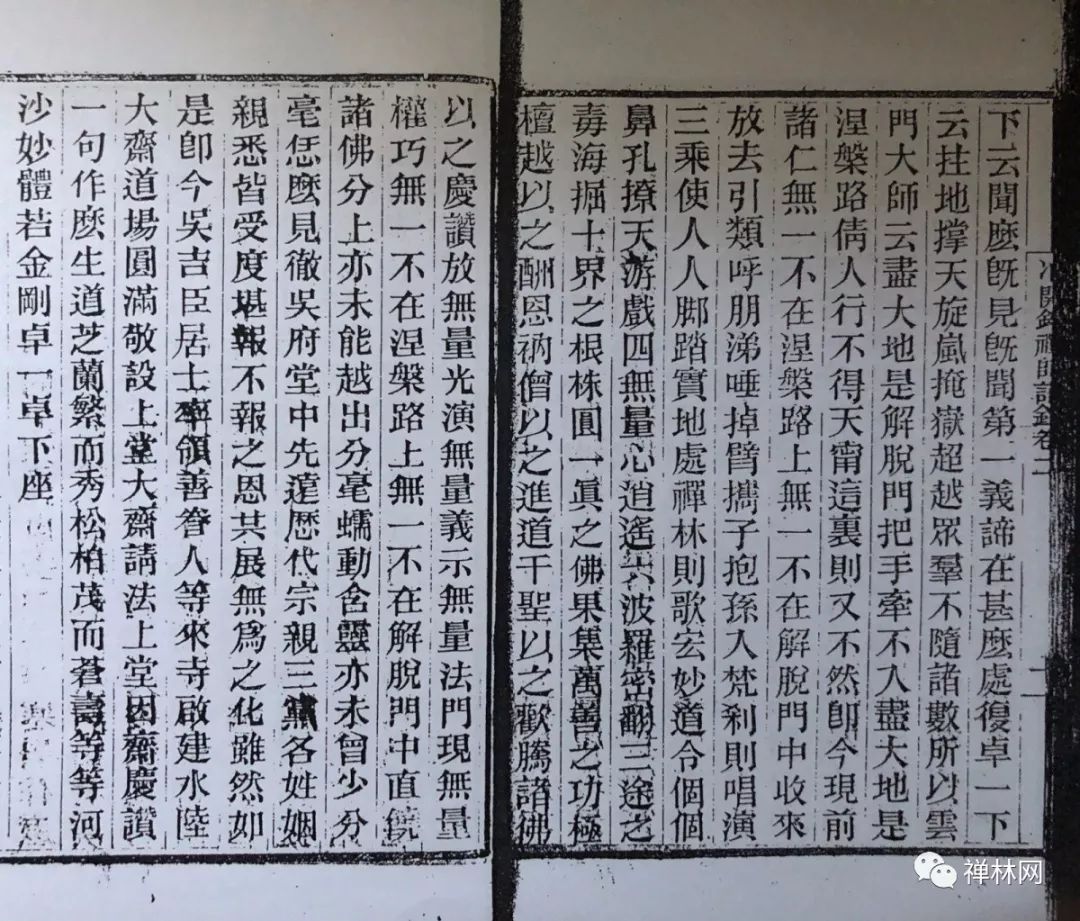 下云聞麼旣見旣聞第一義諦在甚麼處復卓一下
云拄地撑天旋嵐掩嶽超越眾羣不隨諸數所以雲
門大師云盡大地是解脫門把手牽不入盡大地是
涅槃路倩人行不得天甯這裏則又不然卽今現前
諸仁無一不在涅槃路上無一不在解脫門中收來
放去引類呼朋涕唾掉臂攜子抱孫入梵剎則唱演
三乘使人人脚踏實地處禪林則歌宏妙道令個個
鼻孔撩天游戲四無量心逍遙六波羅密翻三途之
毒海掘十界之根株圓一眞之佛果集萬善之功極
檀越以之酬恩衲僧以之進道千聖以之歡騰諸佛
以之慶讚放無量光演無量義示無量法門現無量
權巧無一不在涅槃路上無一不在解脫門中直饒
諸佛分上亦未能越出分毫蠕動含靈亦未曾少分
毫恁麼見徹吳府堂中先遠歷代宗親三黨名姓姻
親悉皆受度堪報不報之恩共展無爲之化雖然如
是卽今吳吉臣居士率領善眷人等來寺啟建水陸
大齋道場圓滿敬設上堂大齋請法上堂因齋慶讚
一句作麼生道芝蘭繁而秀松柏茂而蒼壽等等河
沙妙體若金剛卓一卓下座
禅林网